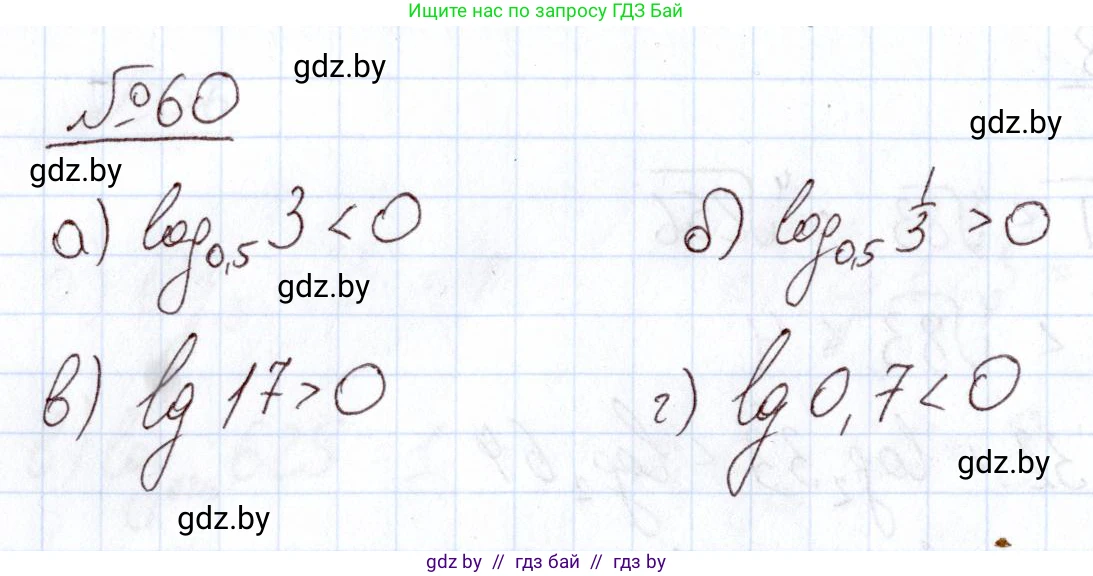 Ищите нас по запросу ГДЗ Бай
gdz.by
№60
gdz.by
gdz.by
а) log₀,₅ 3 < 0
б) log₀,₅ 1/3 > 0
gdz.by
в) lg 17 > 0
г) lg 0,7 < 0
gdz.by
gdz.by
gdz.by // гдз бай // гдз by